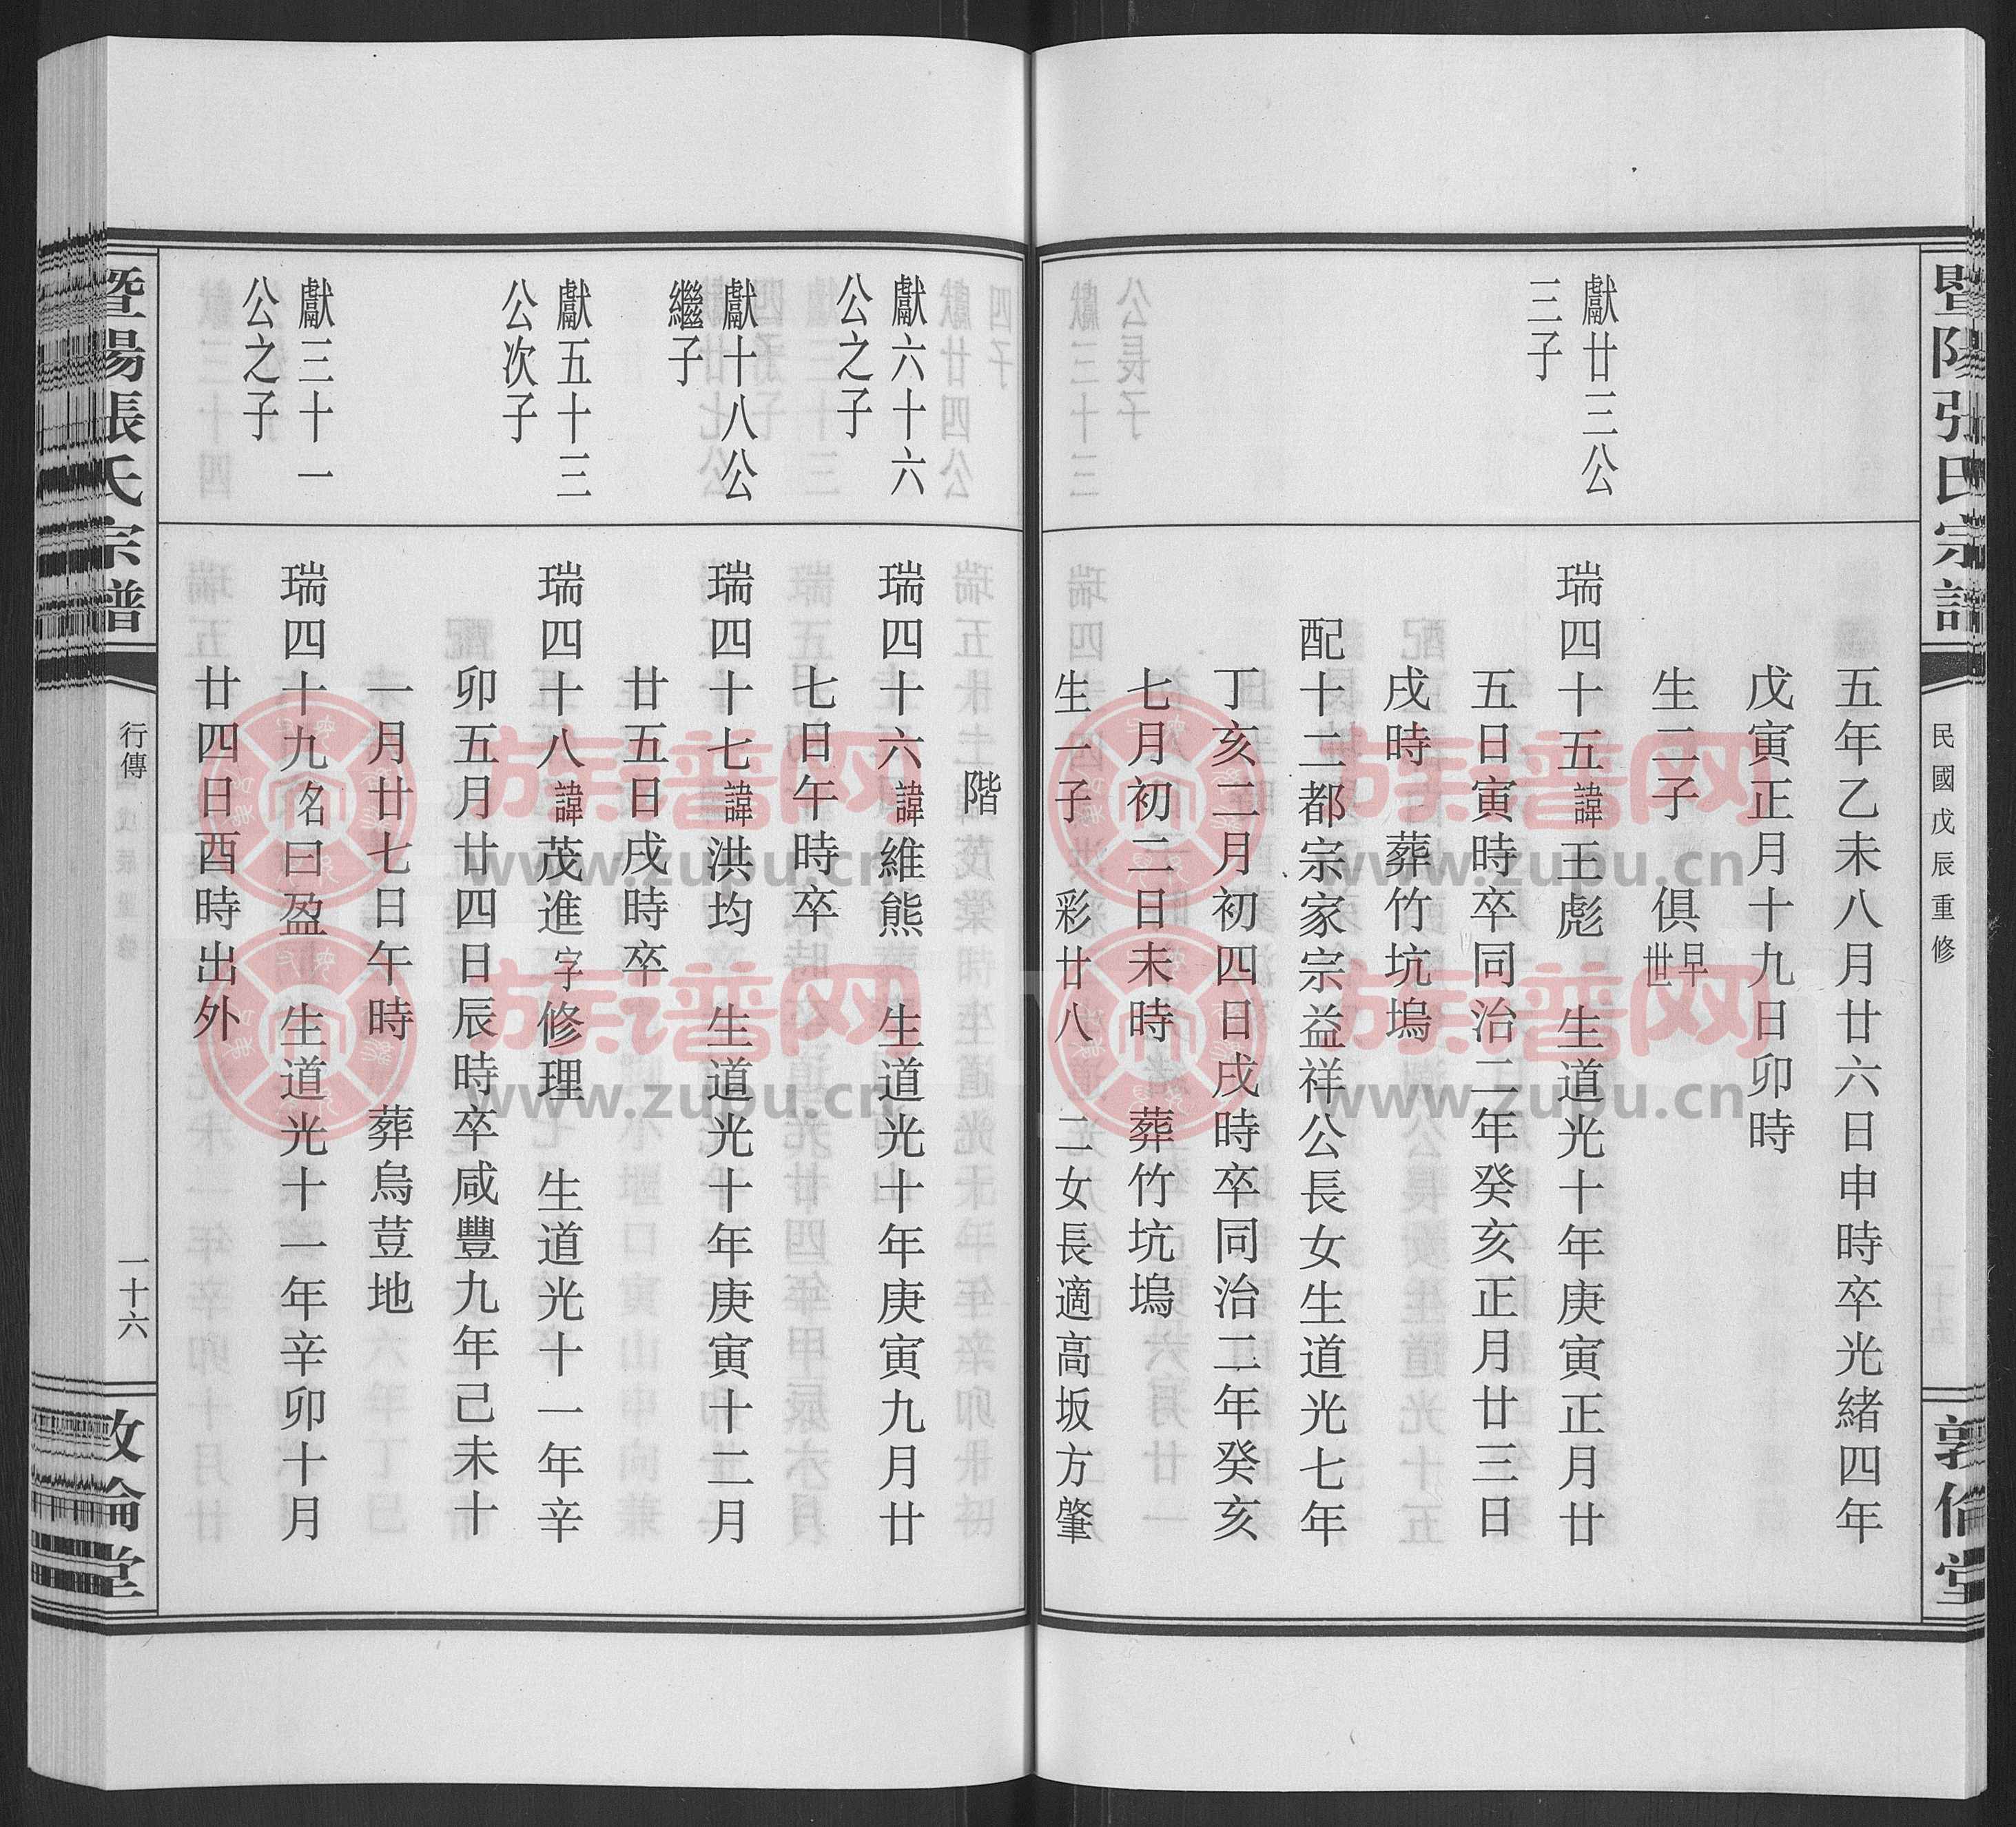 暨陽張氏宗譜
民國戊辰重修
敦倫堂
五年乙未八月廿六日申時卒光緒四年
戊寅正月十九日卯時
生二子 俱早世
獻廿三公
三子
瑞四十五諱王彪 生道光十年庚寅正月廿
五日寅時卒同治二年癸亥正月廿三日
戌時 葬竹坑塢
配十二都宗家宗益祥公長女生道光七年
丁亥二月初四日戌時卒同治二年癸亥
七月初二日未時 葬竹坑塢
生一子 彩廿八 二女長適高坂方肇
階
獻六十六
公之子
瑞四十六諱維熊 生道光十年庚寅九月廿
七日午時卒
獻十八公
繼子
瑞四十七諱洪均 生道光十年庚寅十二月
廿五日戌時卒
獻五十三
公次子
瑞四十八諱茂進字修理 生道光十一年辛
卯五月廿四日辰時卒咸豐九年己未十
一月廿七日午時 葬烏荳地
獻三十一
公之子
瑞四十九名曰盈 生道光十一年辛卯十月
廿四日酉時出外
暨陽張氏宗譜
行傳
一十六
敦倫堂
族譜网
www.zupu.cn
族譜网
www.zupu.cn
族譜网
www.zupu.cn
族譜网
www.zupu.cn